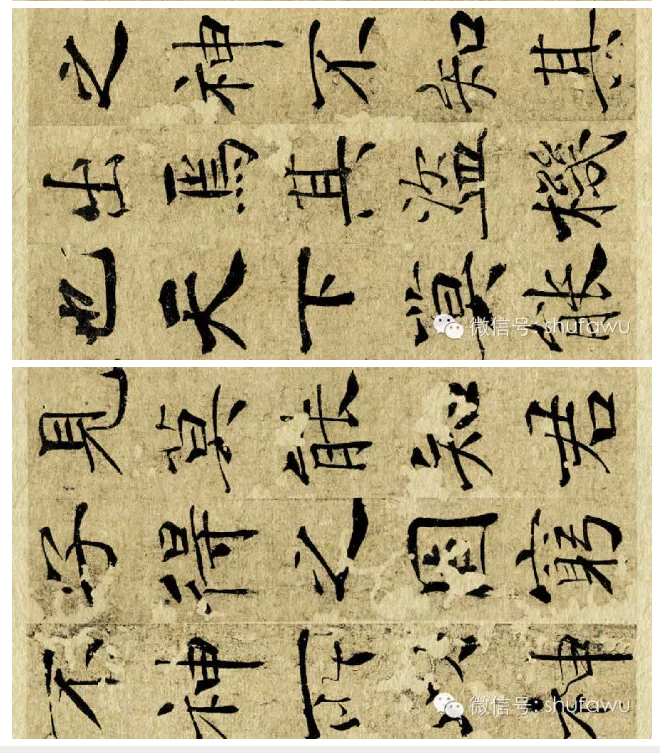 之神不知其
出焉其盜機
也天下莫能
微信号: shufawu
見莫能知君
子得之固躬
不神所以神
微信号: shufawu